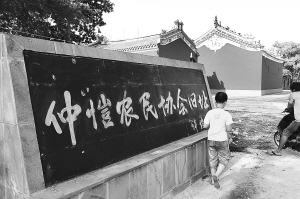 仲"恺农民协会旧址